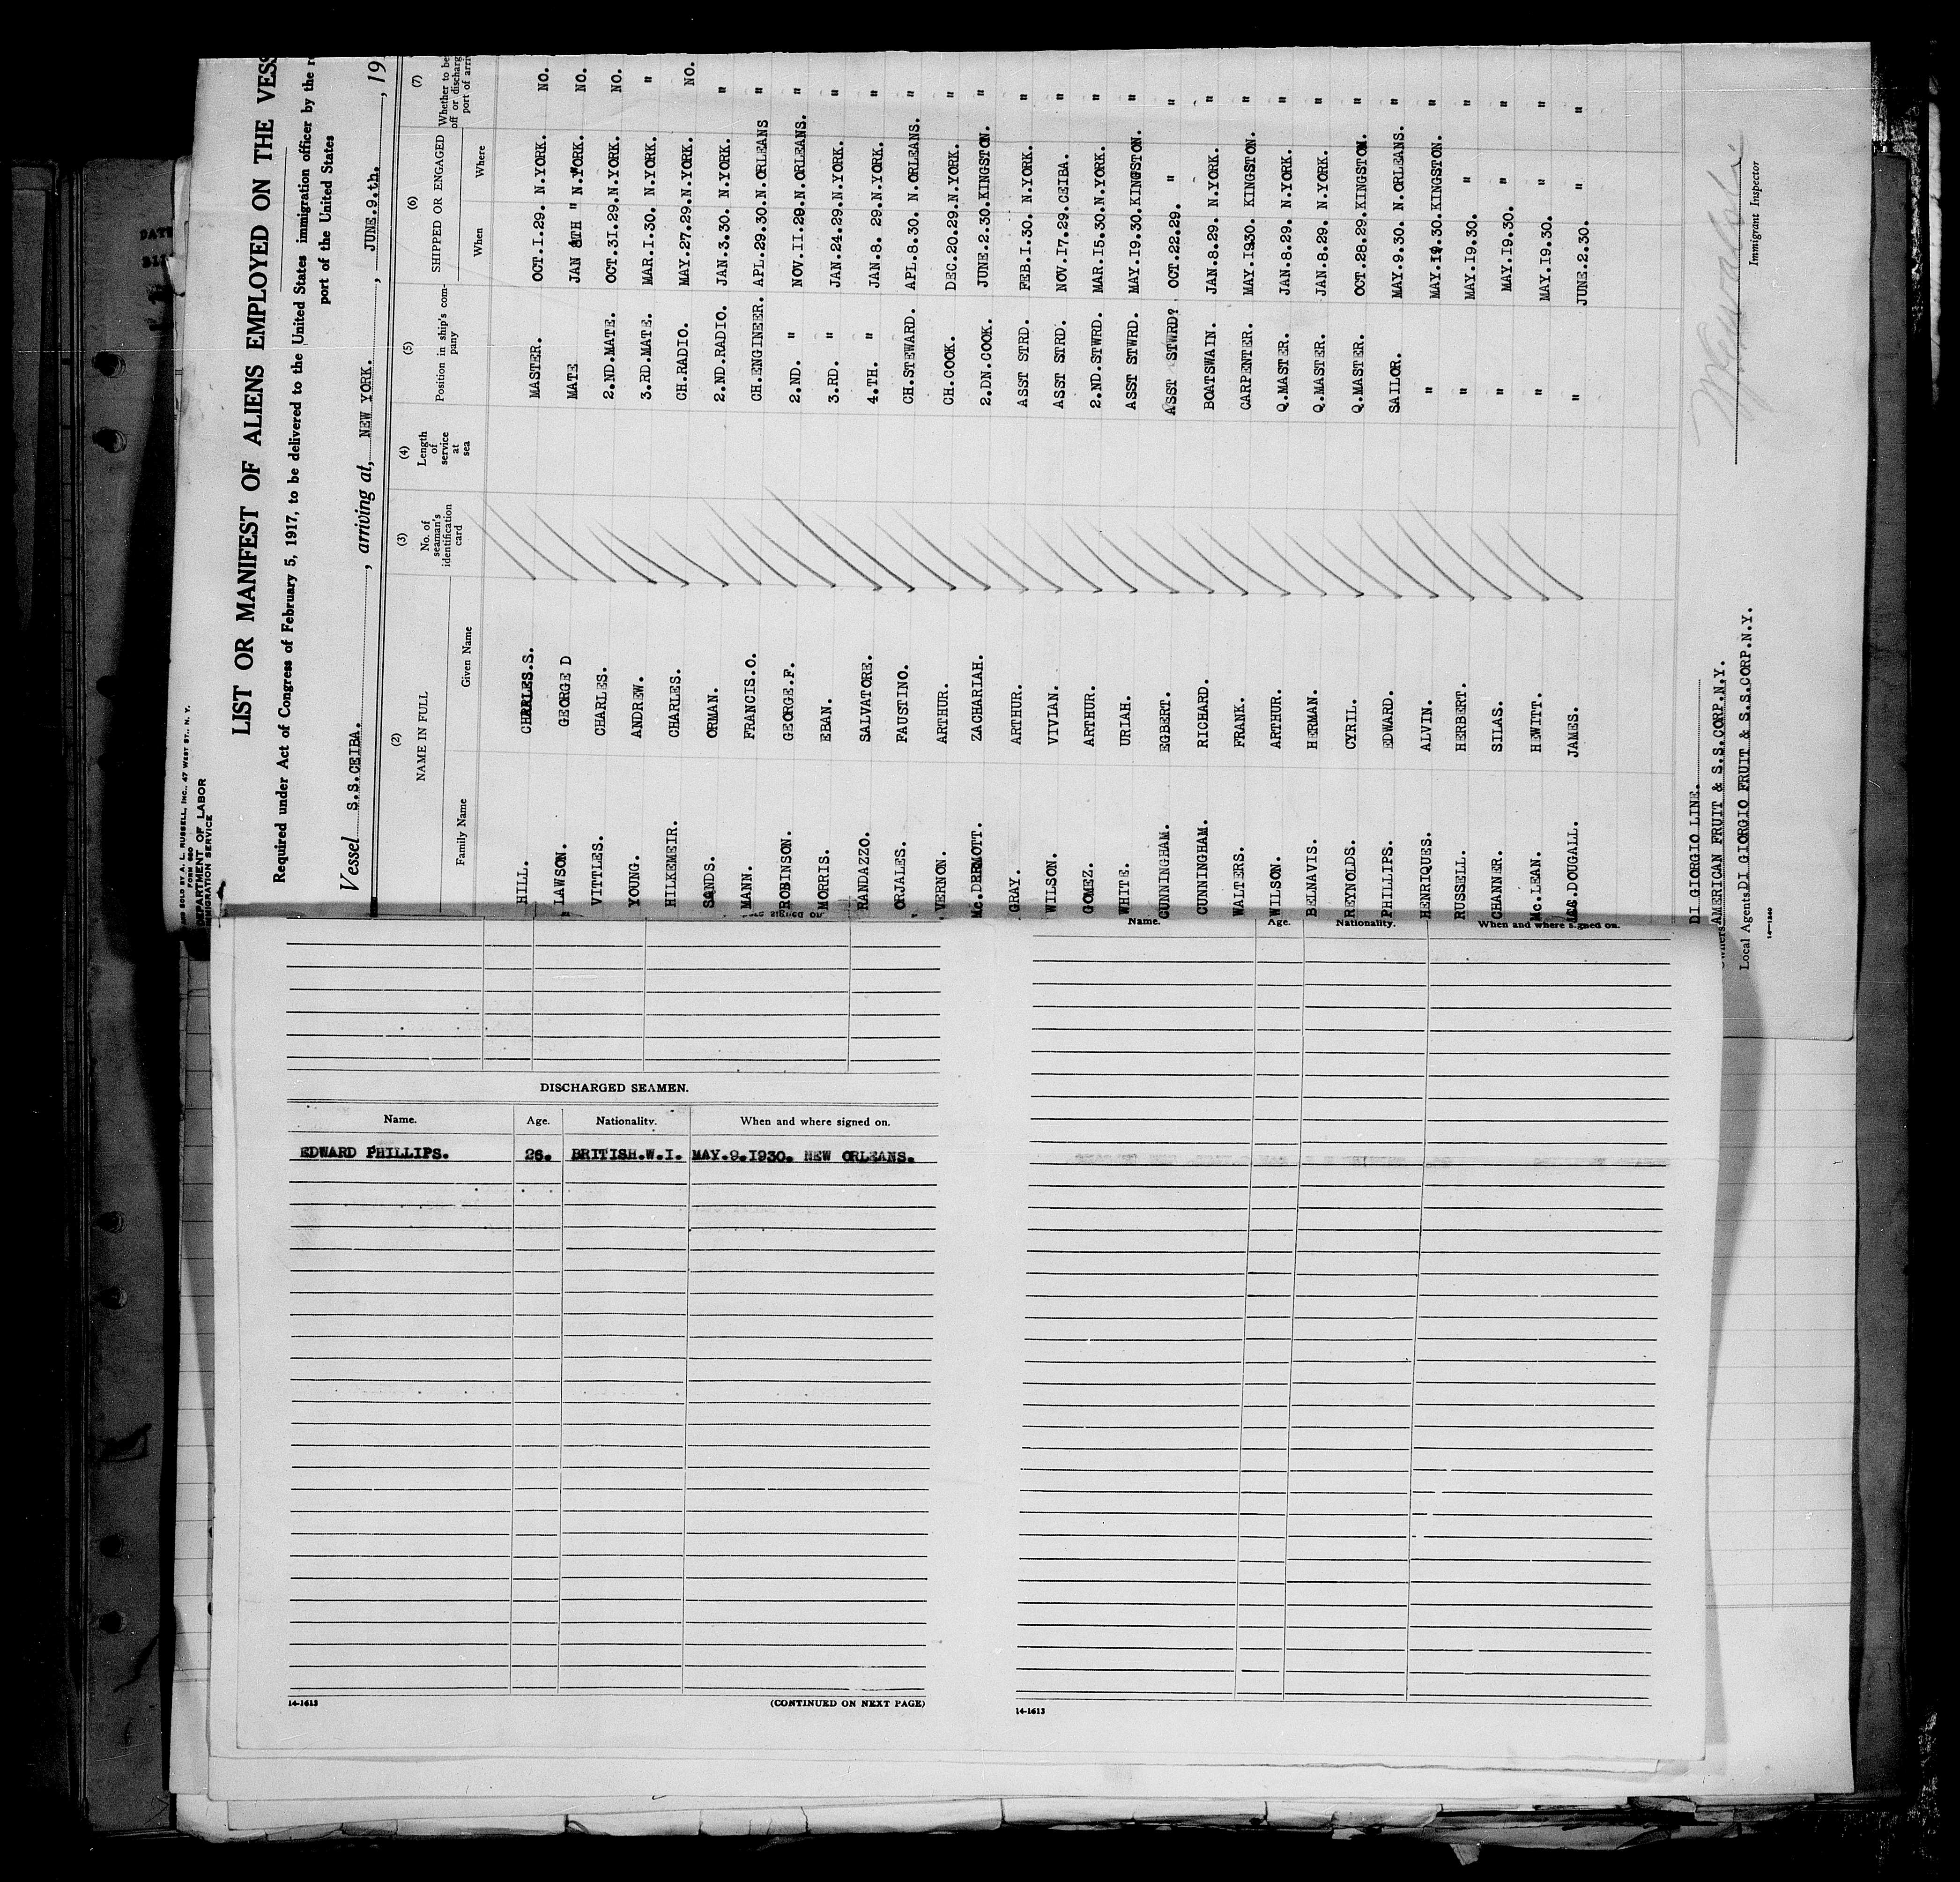 AND SOLD BY A. L. RUSSELL, INC., 47 WEST ST., N. Y.
FORM 680
DEPARTMENT OF LABOR
IMMIGRATION SERVICE
LIST OR MANIFEST OF ALIENS EMPLOYED ON THE VESS
Required under Act of Congress of February 5, 1917, to be delivered to the United States immigration officer by the r
port of the United States
Vessel S.S.CEIBA. , arriving at, NEW YORK. , JUNE.9.th. , 19
(2) (3) (4) (5) (6) (7)
NAME IN FULL No. of seaman's identification card Length of service at sea Position in ship's company SHIPPED OR ENGAGED Whether to be off or discharg port of arriv
Family Name Given Name When Where
HILL. CHARLES.S. MASTER. OCT.I.29. N.YORK. NO.
LAWSON. GEORGE D MATE JAN 8TH " N.YORK. NO.
VITTLES. CHARLES. 2.ND.MATE. OCT.31.29.N.YORK. NO.
YOUNG. ANDREW. 3.RD.MATE. MAR.I.30. N.YORK. "
HILKEMEIR. CHARLES. CH.RADIO. MAY.27.29.N.YORK. NO.
SANDS. ORMAN. 2.ND.RADIO. JAN.3.30. N.YORK. "
MANN. FRANCIS.O. CH.ENGINEER. APL.29.30.N.ORLEANS "
ROBINSON. GEORGE.F. 2.ND. " NOV.II.29.N.ORLEANS. "
MORRIS. EBAN. 3.RD. " JAN.24.29.N.YORK. "
RANDAZZO. SALVATORE. 4.TH. " JAN.8. 29.N.YORK. "
ORJALES. FAUSTINO. CH.STEWARD. APL.8.30. N.ORLEANS. "
VERNON. ARTHUR. CH.COOK. DEC.20.29.N.YORK. "
Mc.DERMOTT. ZACHARIAH. 2.DN.COOK. JUNE.2.30.KINGSTON. "
GRAY. ARTHUR. ASST STRD. FEB.I.30. N.YORK. "
WILSON. VIVIAN. ASST STRD. NOV.I7.29.CEIBA. "
GOMEZ. ARTHUR. 2.ND.STWRD. MAR.I5.30.N.YORK. "
WHITE. URIAH. ASST STWRD. MAY.I9.30.KINGSTON. "
CUNNINGHAM. EGBERT. ASST STWRD? OCT.22.29. " "
CUNNINGHAM. RICHARD. BOATSWAIN. JAN.8.29. N.YORK. "
WALTERS. FRANK. CARPENTER. MAY.I930. KINGSTON. "
WILSON. ARTHUR. Q.MASTER. JAN.8.29. N.YORK. "
BELNAVIS. HERMAN. Q.MASTER. JAN.8.29. N.YORK. "
REYNOLDS. CYRIL. Q.MASTER. OCT.28.29.KINGSTON. "
PHILLIPS. EDWARD. SAILOR. MAY.9.30. N.ORLEANS. "
HENRIQUES. ALVIN. " MAY.I9.30.KINGSTON. "
RUSSELL. HERBERT. " MAY.I9.30. " "
CHANNER. SILAS. " MAY.I9.30. " "
Mc.LEAN. HEWITT. " MAY.I9.30. " "
DOUGALL. JAMES. " JUNE.2.30. " "
DI GIORGIO LINE.
Owners AMERICAN FRUIT & S.S.CORP.N.Y.
Local Agents DI GIORGIO FRUIT & S.S.CORP.N.Y.
14—1240
Immigrant Inspector
Name. Age. Nationality. When and where signed on.
DISCHARGED SEAMEN.
Name. Age. Nationality. When and where signed on.
EDWARD PHILLIPS. 26. BRITISH.W.I. MAY.9.I930. NEW ORLEANS.
14-1613 (CONTINUED ON NEXT PAGE)
14-1613